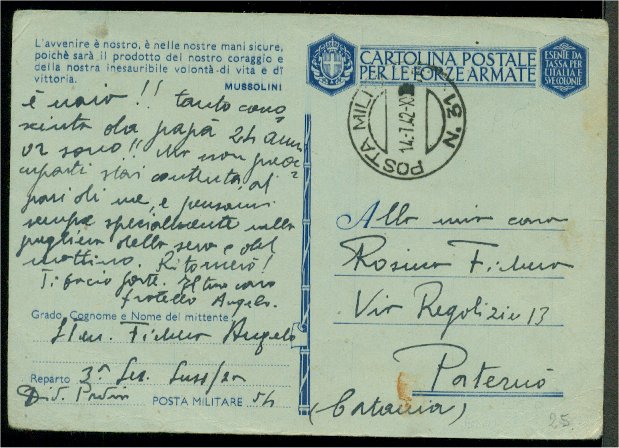 L'avvenire è nostro, è nelle nostre mani sicure,
poichè sarà il prodotto del nostro coraggio e
della nostra inesauribile volontà di vita e di
vittoria.
MUSSOLINI
è !! tanto cono
sciuta da papà 24 anni
or sono!! Ma non preoc
cuparti stai contenta al
pari di me, e pensami
sempre specialmente nella
preghiera della sera e del
mattino. Ritornerò!
Ti bacio forte. Il tuo caro
fratello Angelo.
Grado, Cognome e Nome del mittente
Angelo
Reparto 3ª Sez. Suss/za
POSTA MILITARE 54
CARTOLINA POSTALE
PER LE FORZE ARMATE
ESENTE DA
TASSA PER
L'ITALIA E
SVE COLONIE
POSTA MILI N. 51
14.7.42-10
Alla mia cara
Rosina
Via 13
Paternò
(Catania)
25